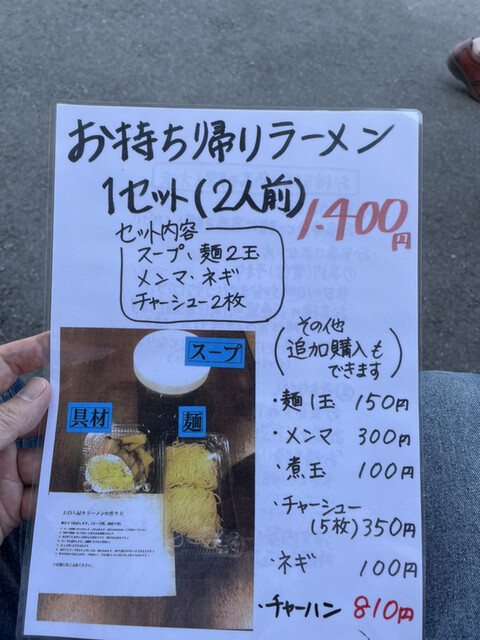 お持ち帰りラーメン
1セット(2人前)
1.400円
セット内容
スープ、麺2玉
メンマ・ネギ
チャーシュー2枚
(その他
追加購入も
できます)
・麺1玉 150円
・メンマ 300円
・煮玉 100円
・チャーシュー
(5枚) 350円
・ネギ 100円
・チャーハン 810円
スープ
具材
麺